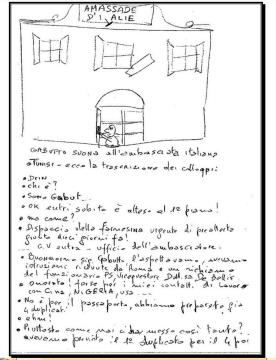 AMASSADE
D'ITALIE
GABUTTO SUONA all'ambasciata italiana
a Tunisi - ecco la trascrizione dei colloqui:
• DRIN
• chi è?
• Sono Gabut..
• OK entri subito è atteso al 12 piano!
• ma come?
• Dispaccio della farnesina urgente di
giunto dieci giorni fa!
G.V entra - ufficio dell'ambasciatore:
• Buongiorno - sig. Gabutto l'aspettavamo, avevamo
istruzioni ricevute da Roma e un richiamo
del funzionario PS, vicequestore
• Onorato! forse per i miei contatti di lavoro
con Cina, NIGERIA, USA
• No è per il passaporto, abbiamo preparato già
4 duplicati
• ehm!
• Piuttosto come mai ci ha messo così tanto?
avevamo previsto il 1° duplicato per il 4